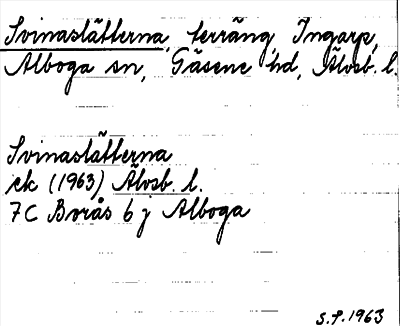 Svinaslätterna, terräng, Ingarp,
Alboga sn, Gäsene hd, Älvsb. l.
Svinaslätterna
ek (1963) Älvsb. l.
7C Borås 6 j Alboga
S.F. 1963